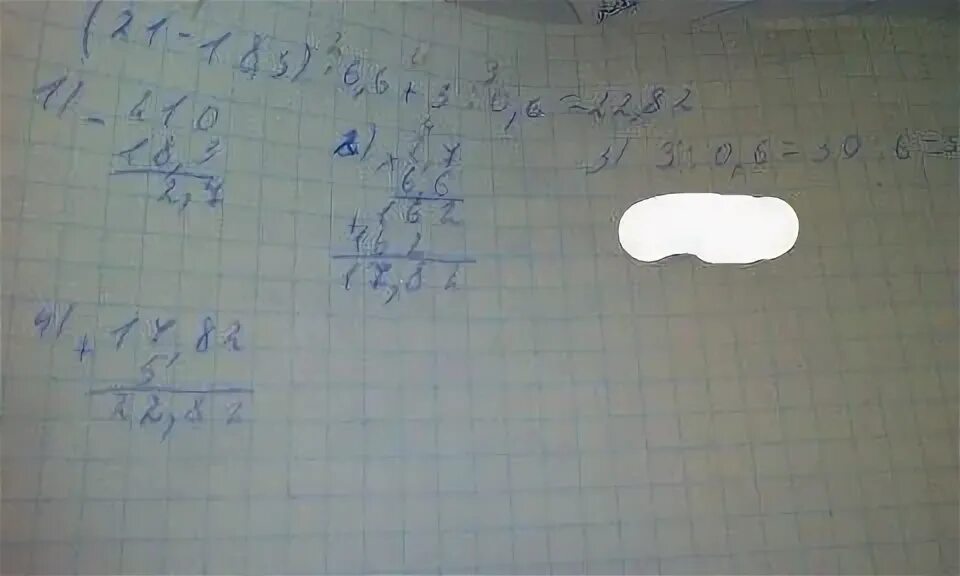 (21-18,3)·6,6+3:0,6=22,82
1) - 210
18,3
2,7
2) × 2,7
6,6
+ 162
162
17,82
3) 3:0,6=30:6=5
4) + 17,82
5
22,82